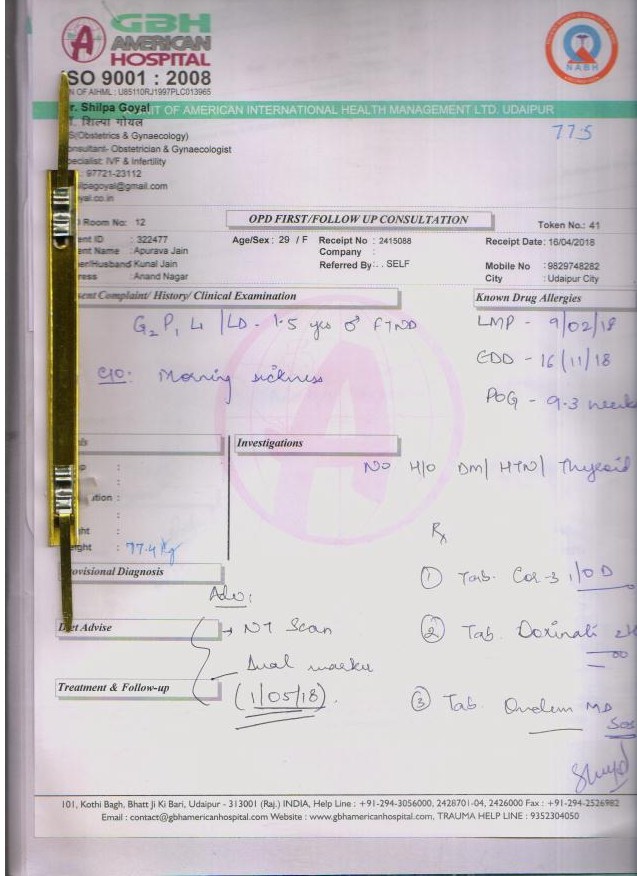 GBH
AMERICAN
HOSPITAL
ISO 9001 : 2008
N OF AIHML : U85110RJ1997PLC013965
NABH
r. Shilpa Goyal
IT OF AMERICAN INTERNATIONAL HEALTH MANAGEMENT LTD. UDAIPUR
शिल्पा गोयल
77.5
S(Obstetrics & Gynaecology)
onsultant- Obstetrician & Gynaecologist
pecialist: IVF & Infertility
: 97721-23112
ilpagoyal@gmail.com
yal.co.in
Room No: 12
OPD FIRST/FOLLOW UP CONSULTATION
Token No.: 41
ent ID : 322477
Age/Sex : 29 / F
Receipt No : 2415088
Receipt Date: 16/04/2018
ent Name : Apurava Jain
Company :
er/Husband Kunal Jain
Referred By: . SELF
Mobile No : 9829748282
ress : Anand Nagar
City : Udaipur City
sent Complaint/ History/ Clinical Examination
Known Drug Allergies
G2P1L1 / LD - 1.5 yrs ♂ FTND
LMP - 9/02/18
EDD - 16/11/18
C/O: Morning sickness
POG - 9.3 weeks
Investigations
NO H/O DM/ HTN/ Thyroid
ation :
ht :
eight : 77.4 kg
Rx
Provisional Diagnosis
① Tab. 1/OD
Adv:
Diet Advise
→ NT Scan
② Tab. Doxinate
Dual marker
Treatment & Follow-up
(1/05/18).
③ Tab. MD
SOS
101, Kothi Bagh, Bhatt Ji Ki Bari, Udaipur - 313001 (Raj.) INDIA, Help Line : +91-294-3056000, 2428701-04, 2426000 Fax : +91-294-2526982
Email : contact@gbhamericanhospital.com Website : www.gbhamericanhospital.com, TRAUMA HELP LINE : 9352304050